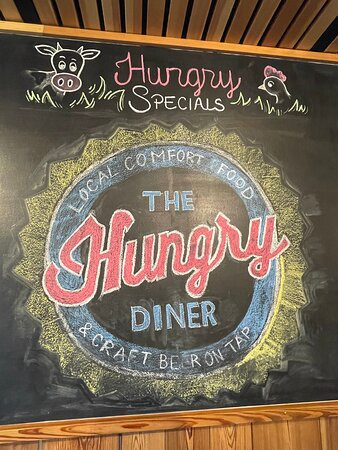 Hungry
SPECIALS
LOCAL COMFORT FOOD
THE
Hungry
DINER
& CRAFT BEER ON TAP